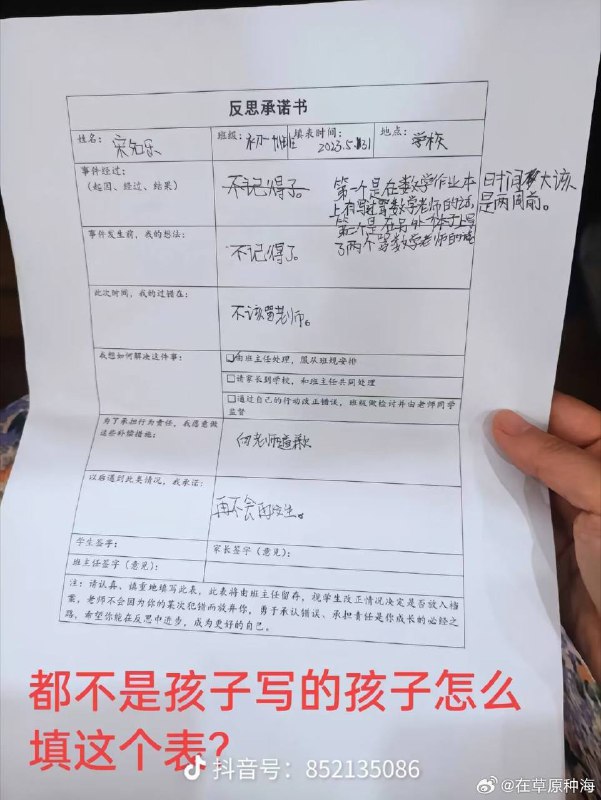 反思承诺书
姓名： 宋知乐 班级： 初一 填表时间： 2023.5.31 地点： 学校
事件经过：
（起因、经过、结果）
不记得了。
第一个是在数学作业本
上有写过骂数学老师的话，
第二个是在另外一本子上写
了两个骂数学老师的
时间大该
是两周前。
事件发生前，我的想法：
不记得了。
此次时间，我的过错在：
不该骂老师。
我想如何解决这件事：
由班主任处理，服从班规安排
请家长到学校，和班主任共同处理
通过自己的行动改正错误，班级做检讨并由老师同学
监督
为了承担行为责任，我愿意做
这些补偿措施：
向老师道歉
以后遇到此类情况，我承诺：
再不会再发生。
学生签字： 家长签字（意见）：
班主任签字（意见）：
注：请认真、慎重地填写此表，此表将由班主任留存，视学生改正情况决定是否放入档
案，老师不会因为你的某次犯错而放弃你，勇于承认错误、承担责任是你成长的必经之
路，希望你能在反思中进步，成为更好的自己。
都不是孩子写的孩子怎么
填这个表？
抖音号：852135086
@在草原种海